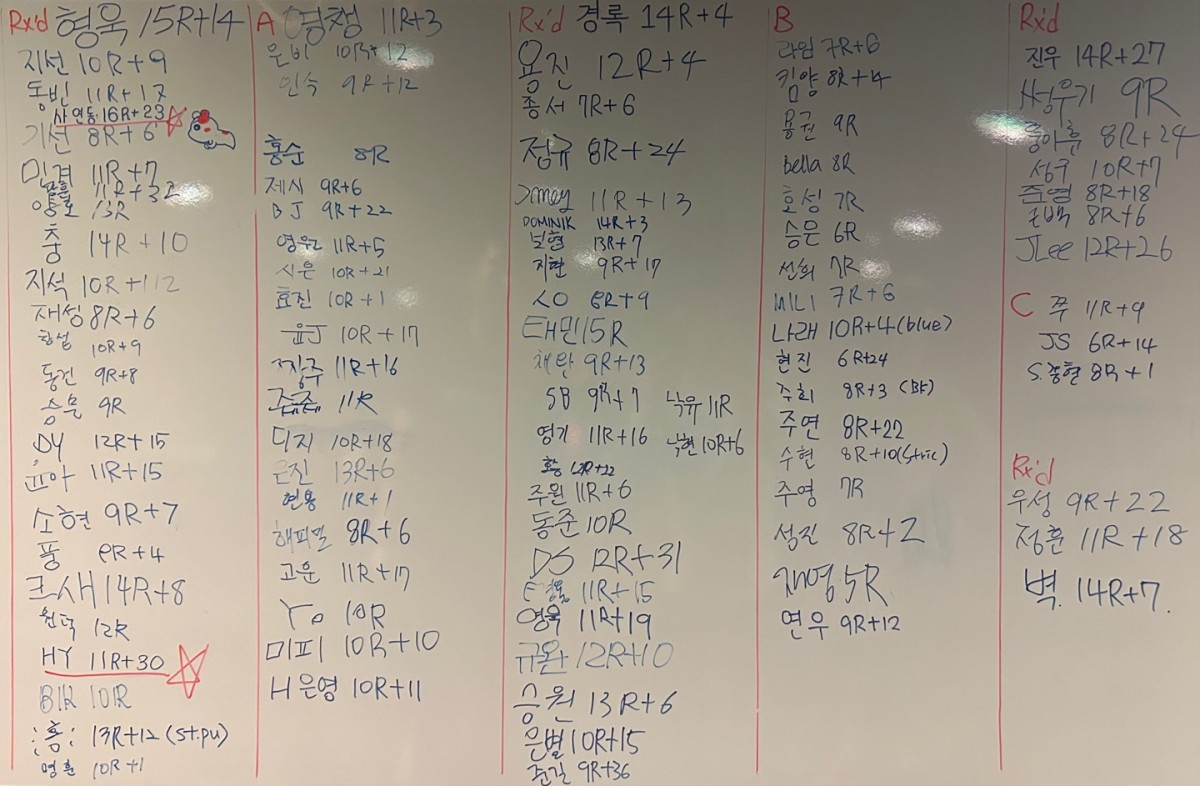 Rx'd 형욱 15R+14
지선 10R+9
동빈 11R+17
사연동 16R+23
기선 8R+6
민경 11R+7
11R+32
양호 13R
충 14R+10
지석 10R+112
재성 8R+6
10R+9
동건 9R+8
승문 9R
DY 12R+15
윤아 11R+15
소현 9R+7
풍 8R+4
크새 14R+8
원덕 12R
HY 11R+30
BIR 10R
홈 13R+12 (st.pu)
명훈 10R+1
A 11R+3
은비 10R+12
인숙 9R+12
홍순 8R
제시 9R+6
BJ 9R+22
영우 11R+5
시은 10R+21
효진 10R+1
윤J 10R+17
짱주 11R+16
쥰쥰 11R
디지 10R+18
근진 13R+6
현용 11R+1
해피밀 8R+6
고운 11R+17
Yo 10R
미피 10R+10
H은영 10R+11
Rx'd 경록 14R+4
용진 12R+4
종서 7R+6
정규 8R+24
11R+13
DOMINIK 14R+3
보현 13R+7
지현 9R+17
8R+9
태민 15R
채완 9R+13
SB 9R+7
낙유 11R
영기 11R+16
낙현 10R+6
황 12R+22
주원 11R+6
동준 10R
DS 12R+31
11R+15
영욱 11R+19
규완 12R+10
승원 13R+6
은별 10R+15
준길 9R+36
B
라임 7R+6
킴양 8R+14
용권 9R
bella 8R
호성 7R
승은 6R
선희 7R
MILI 7R+6
나래 10R+4 (blue)
현진 6R+24
주희 8R+3 (BF)
주연 8R+22
수현 8R+10 (Stric)
주영 7R
성진 8R+2
재영 5R
연우 9R+12
Rx'd
진우 14R+27
9R
8R+24
성우 10R+7
준영 8R+18
근백 8R+6
JLee 12R+26
C 쭈 11R+9
JS 6R+14
S.종현 8R+1
Rx'd
우성 9R+22
정훈 11R+18
벽. 14R+7.